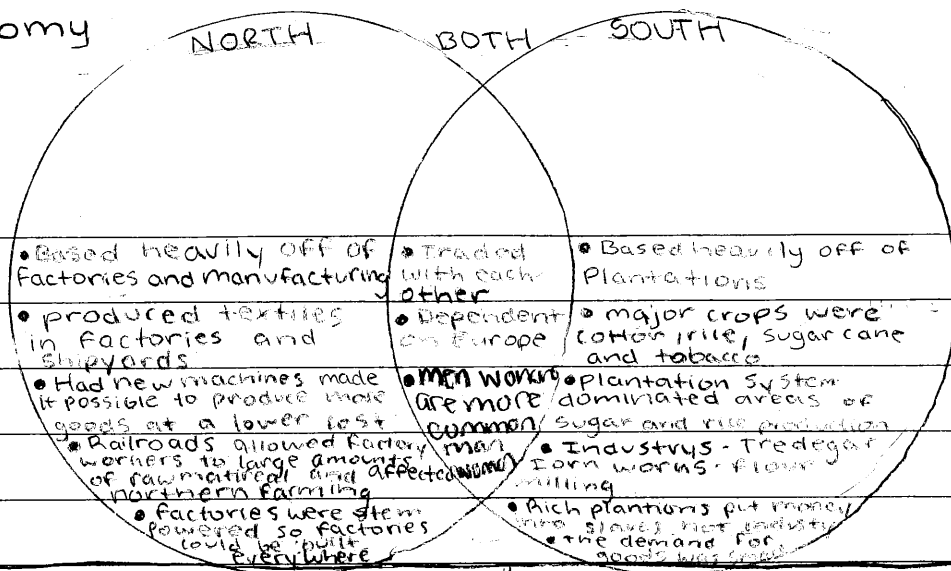 omy
NORTH
BOTH
SOUTH
• Based heavily off of
factories and manufacturing
• produced textiles
in factories and
shipyards
• Had new machines made
it possible to produce more
goods at a lower cost
• Railroads allowed factory
workers to large amounts
of rawmatireal and affected
northern farming
• factories were stem
powered so factories
could be built
everywhere
• Traded
with each
other
• Dependent
on Europe
• men working
are more
common
man
women
• Based heavily off of
Plantations
• major crops were
cottor, rice, sugar cane
and tobacco
• Plantation system
dominated areas of
sugar and rice production
• Industrys - Tredegar
Iorn works - flour
milling
• Rich plantions put money
into slaves not industry
• the demand for
goods was small